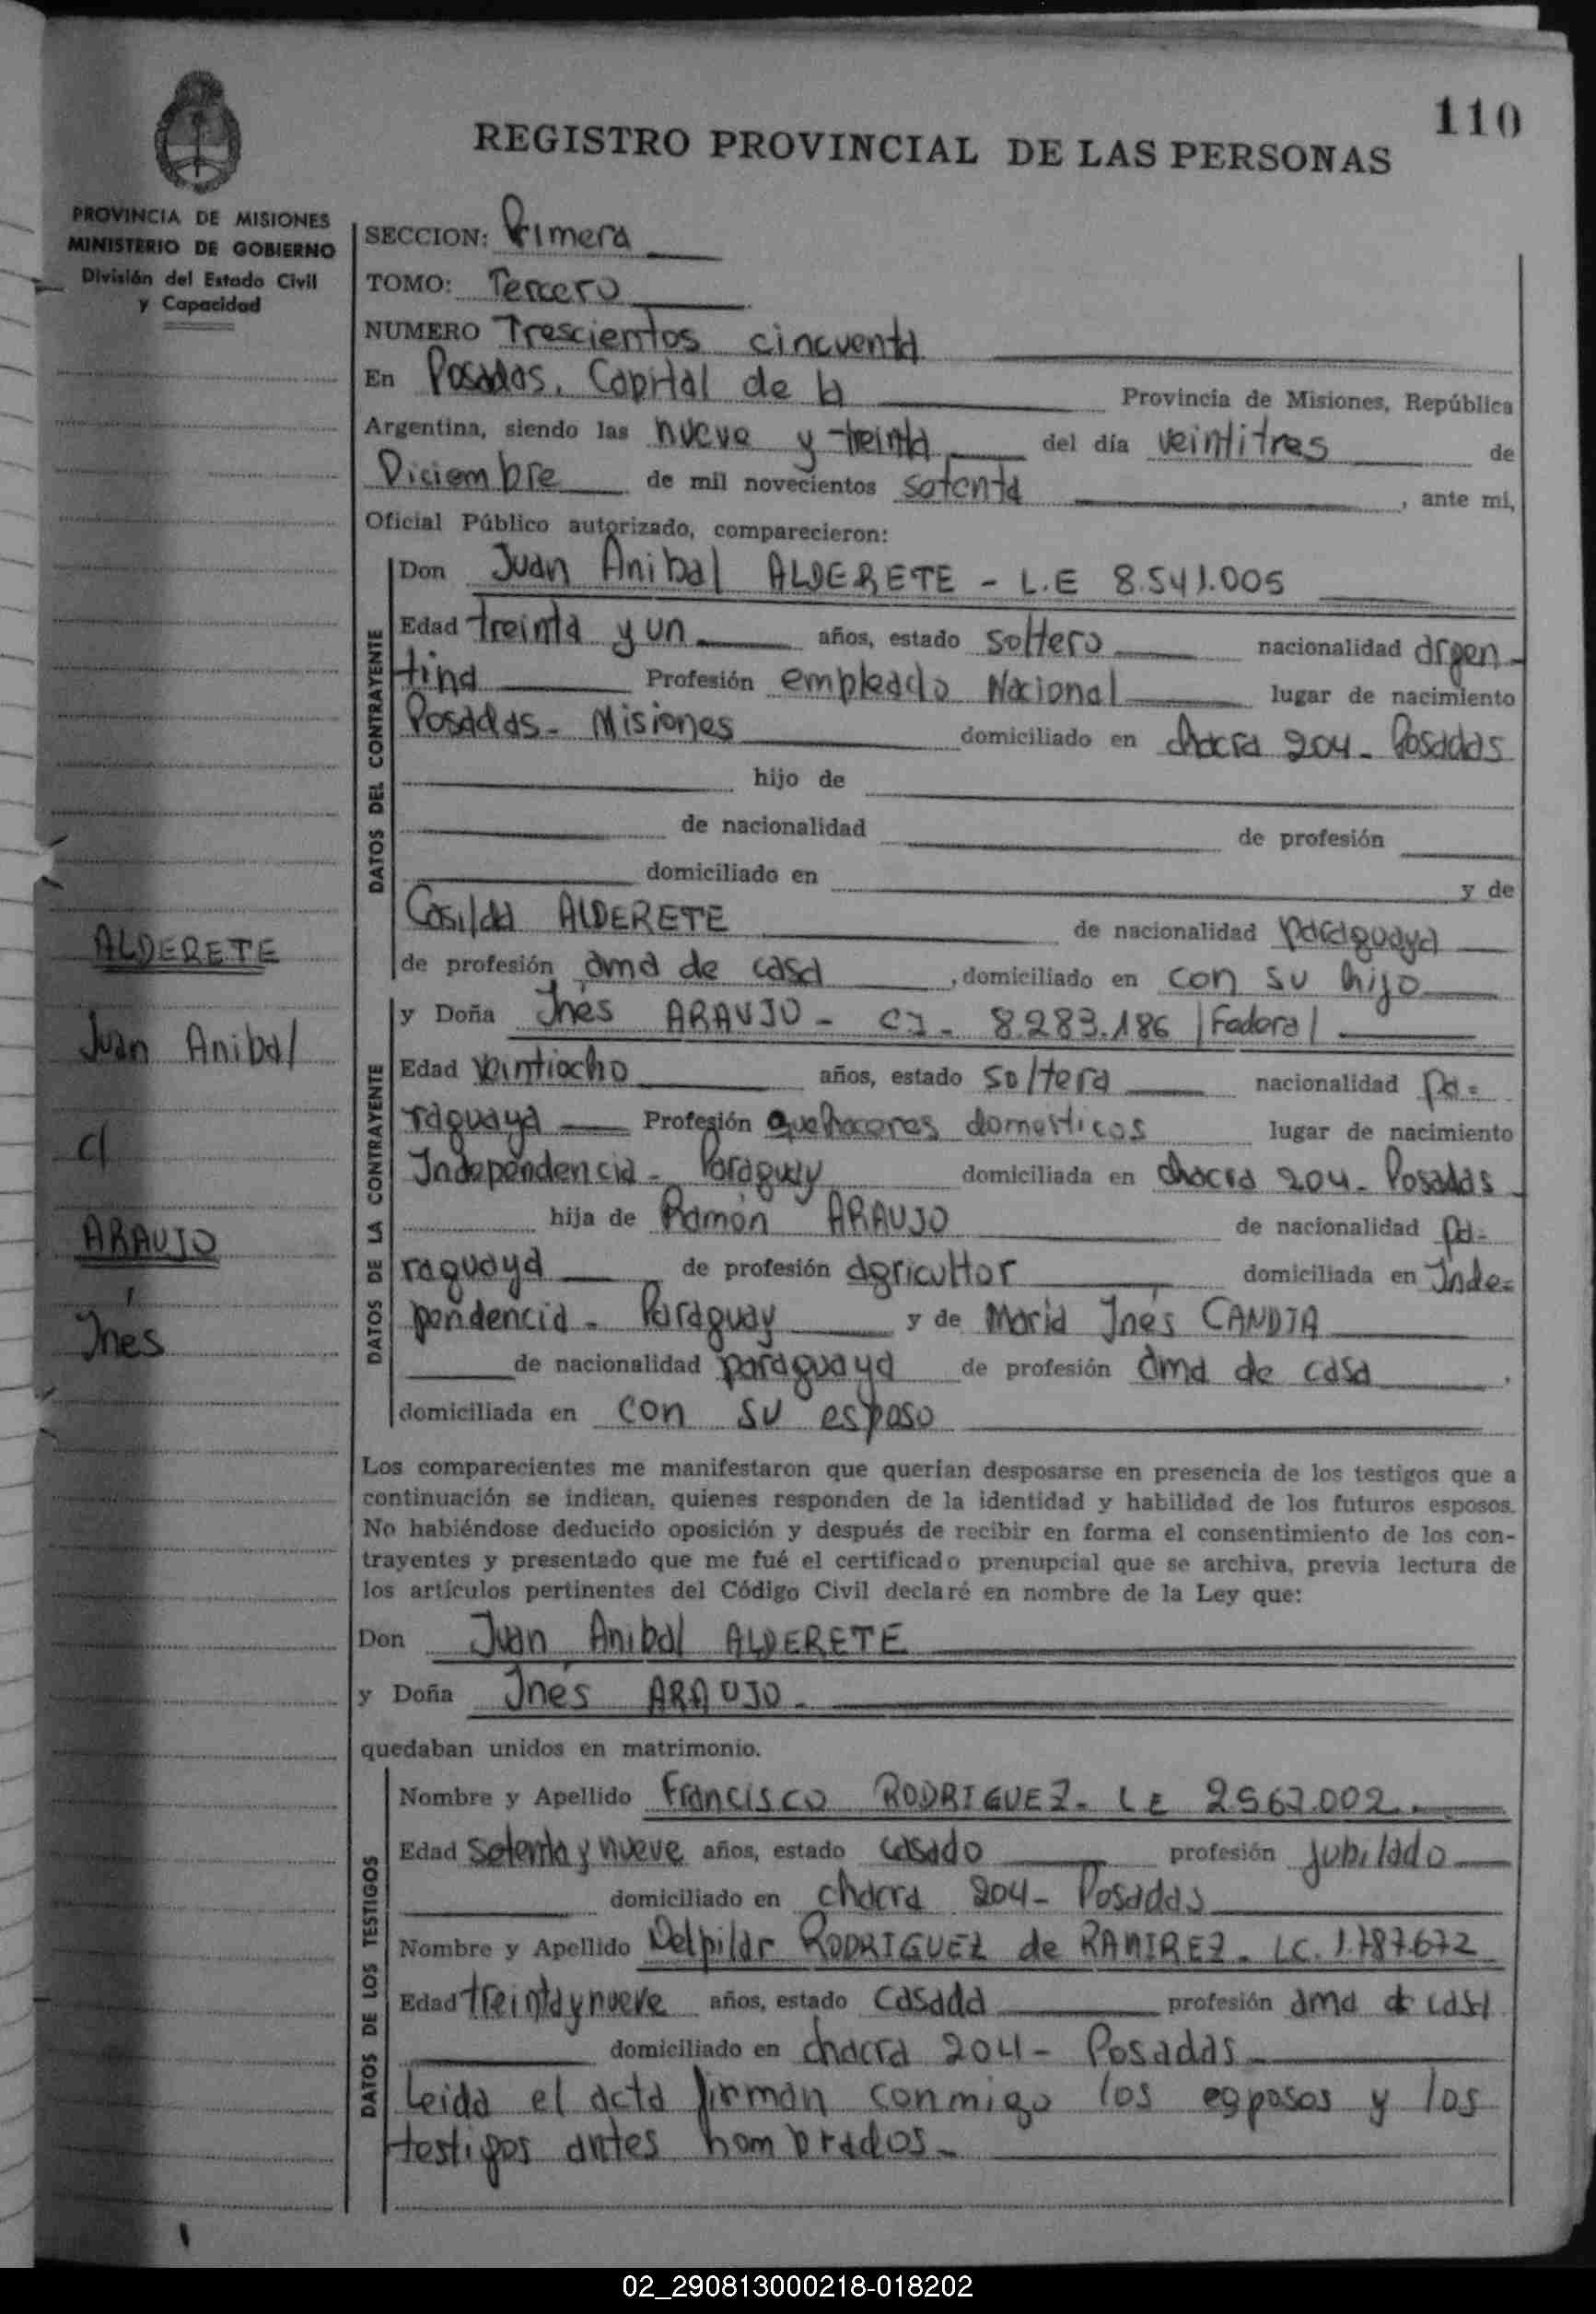 110
REGISTRO PROVINCIAL DE LAS PERSONAS
PROVINCIA DE MISIONES
MINISTERIO DE GOBIERNO
División del Estado Civil
y Capacidad
SECCION: Primera
TOMO: Tercero
NUMERO Trescientos cincuenta
En Posadas, Capital de la Provincia de Misiones, República
Argentina, siendo las nueve y treinta del día veintitres de
Diciembre de mil novecientos setenta, ante mi,
Oficial Público autorizado, comparecieron:
DATOS DEL CONTRAYENTE
Don Juan Anibal ALDERETE - L.E 8.541.005
Edad treinta y un años, estado soltero nacionalidad argen-
tina Profesión empleado Nacional lugar de nacimiento
Posadas - Misiones domiciliado en chacra 204 - Posadas
hijo de
de nacionalidad de profesión
domiciliado en y de
Casilda ALDERETE de nacionalidad paraguaya
de profesión ama de casa, domiciliado en con su hijo
DATOS DE LA CONTRAYENTE
y Doña Inés ARAUJO - CI - 8.283.186 | Federal
Edad veintiocho años, estado soltera nacionalidad pa-
raguaya Profesión quehaceres domesticos lugar de nacimiento
Independencia - Paraguay domiciliada en chacra 204 - Posadas
hija de Ramón ARAUJO de nacionalidad pa-
raguaya de profesión agricultor domiciliada en Inde-
pendencia - Paraguay y de Maria Inés CANDIA
de nacionalidad paraguaya de profesión ama de casa,
domiciliada en con su esposo
ALDERETE
Juan Anibal
c/
ARAUJO
Inés
Los comparecientes me manifestaron que querían desposarse en presencia de los testigos que a
continuación se indican, quienes responden de la identidad y habilidad de los futuros esposos.
No habiéndose deducido oposición y después de recibir en forma el consentimiento de los con-
trayentes y presentado que me fué el certificado prenupcial que se archiva, previa lectura de
los artículos pertinentes del Código Civil declaré en nombre de la Ley que:
Don Juan Anibal ALDERETE
y Doña Inés ARAUJO -
quedaban unidos en matrimonio.
DATOS DE LOS TESTIGOS
Nombre y Apellido Francisco RODRIGUEZ - LE 2567.002 -
Edad setenta y nueve años, estado casado profesión jubilado
domiciliado en chacra 204 - Posadas
Nombre y Apellido Delpilar RODRIGUEZ de RAMIREZ - LC. 1.787.672
Edad treinta y nueve años, estado casada profesión ama de casa
domiciliado en chacra 204 - Posadas -
Leida el acta firman conmigo los esposos y los
testigos antes nombrados -
02_290813000218-018202